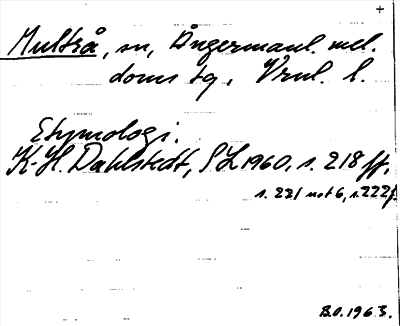 +
Multrå, sn, Ångermanl. mel.
doms tg, Vrnl. l.
Etymologi.
K-H. Dahlstedt, SL 1960, s. 218 ff,
s. 221 not 6, s. 222 f.
B.O. 1963.